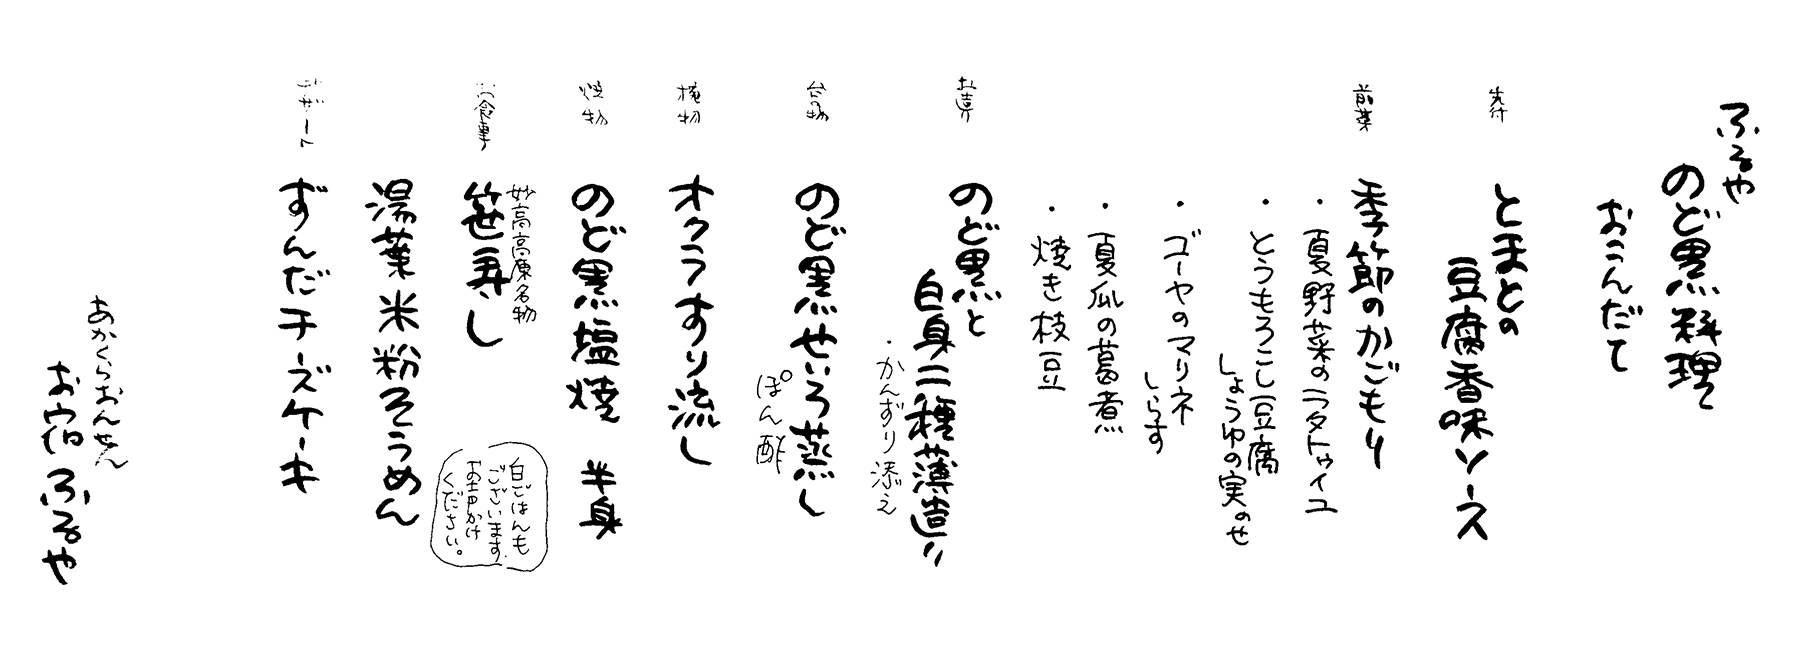 ふるや
のど黒料理
おこんだて
先付
とまとの
豆腐香味ソース
前菜
季節のかごもり
・夏野菜のラタトゥイユ
・とうもろこし豆腐
しょうゆの実のせ
・ゴーヤのマリネ
しらす
・夏瓜の葛煮
・焼き枝豆
お造り
のど黒と
白身二種薄造り
・かんずり添え
台の物
のど黒せいろ蒸し
ぽん酢
椀物
オクラすり流し
焼物
のど黒塩焼 半身
お食事
妙高高原名物
笹寿し
白ごはんも
ございます。
お声かけ
ください。
湯葉米粉そうめん
デザート
ずんだチーズケーキ
あかくらおんせん
お宿ふるや